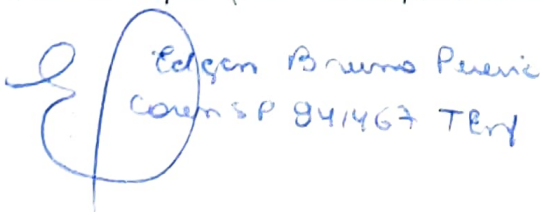 Edgar Bruno Pereira
Coren SP 941467 TEnf